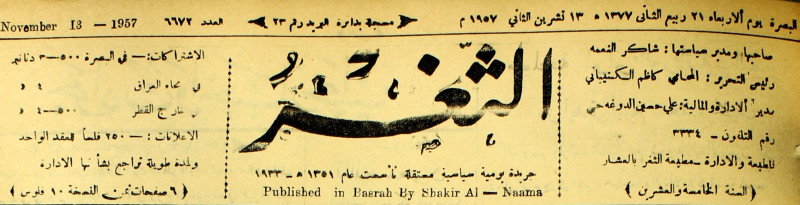 البصرة يوم الاربعاء ٢١ ربيع الثاني ١٣٧٧ ھ ١٣ تشرين الثاني ١٩٥٧ م مسجلة بدائرة البريد رقم ٢٣ العدد ٦٦٧٢ November 13 — 1957
صاحبها ومدير سياستها : شاكر النعمه
رئيس التحرير : المحامي كاظم الكتيباني
مدير الادارة والمالية : علي حسين الدوغه جي
رقم التلفون - ٣٣٣٤
المطبعة والادارة - مطبعة الثغر بالعشار
( السنة الخامسة والعشرين )
الثغر
جريدة يومية سياسية مستقلة تأسست عام ١٣٥١ ھ - ١٩٣٣
Published in Basrah By Shakir Al — Naama
الاشتراكات :— في البصرة ٥٠٠-٣ دنانير
في انحاء العراق ٤ »
في خارج القطر ٥٠٠-٤ »
الاعلانات :— ٢٥٠ فلساً للعقد الواحد
ولمدة طويلة تراجع بشأنها الادارة
( ٦ صفحات ثمن النسخة ١٠ فلوس )